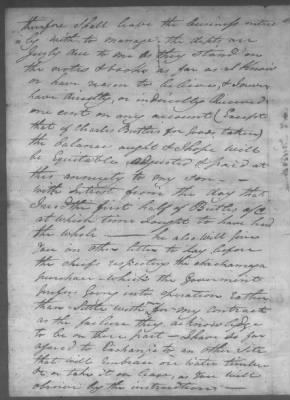 therefore I shall leave the business entire
ly with to manage, the debts are
Justly due to me as they stand on
the notes & books as far as I know
or have reason to believe, & I never
have directly, or indirectly Received
one cent on any account (Except
that of Charles Buttles for goods taken)
the balance ought & I hope will
be Equitable adjusted & paid at
this annuity to my son —
with Interest from the day that
I the first half of Buttles a/c
at which time I ought to have had
the whole — he also will give
you an other letter to lay before
the chief respecting the chickamaga
purchase which the Government
prefer going into operation Rather
than Settle with for my contract
as the failure they acknowledge
to be on there part — I have so far
agreed to Exchange to an other Site
that will Embrace water timber
& or take it on lease as you will
observe by the instructions